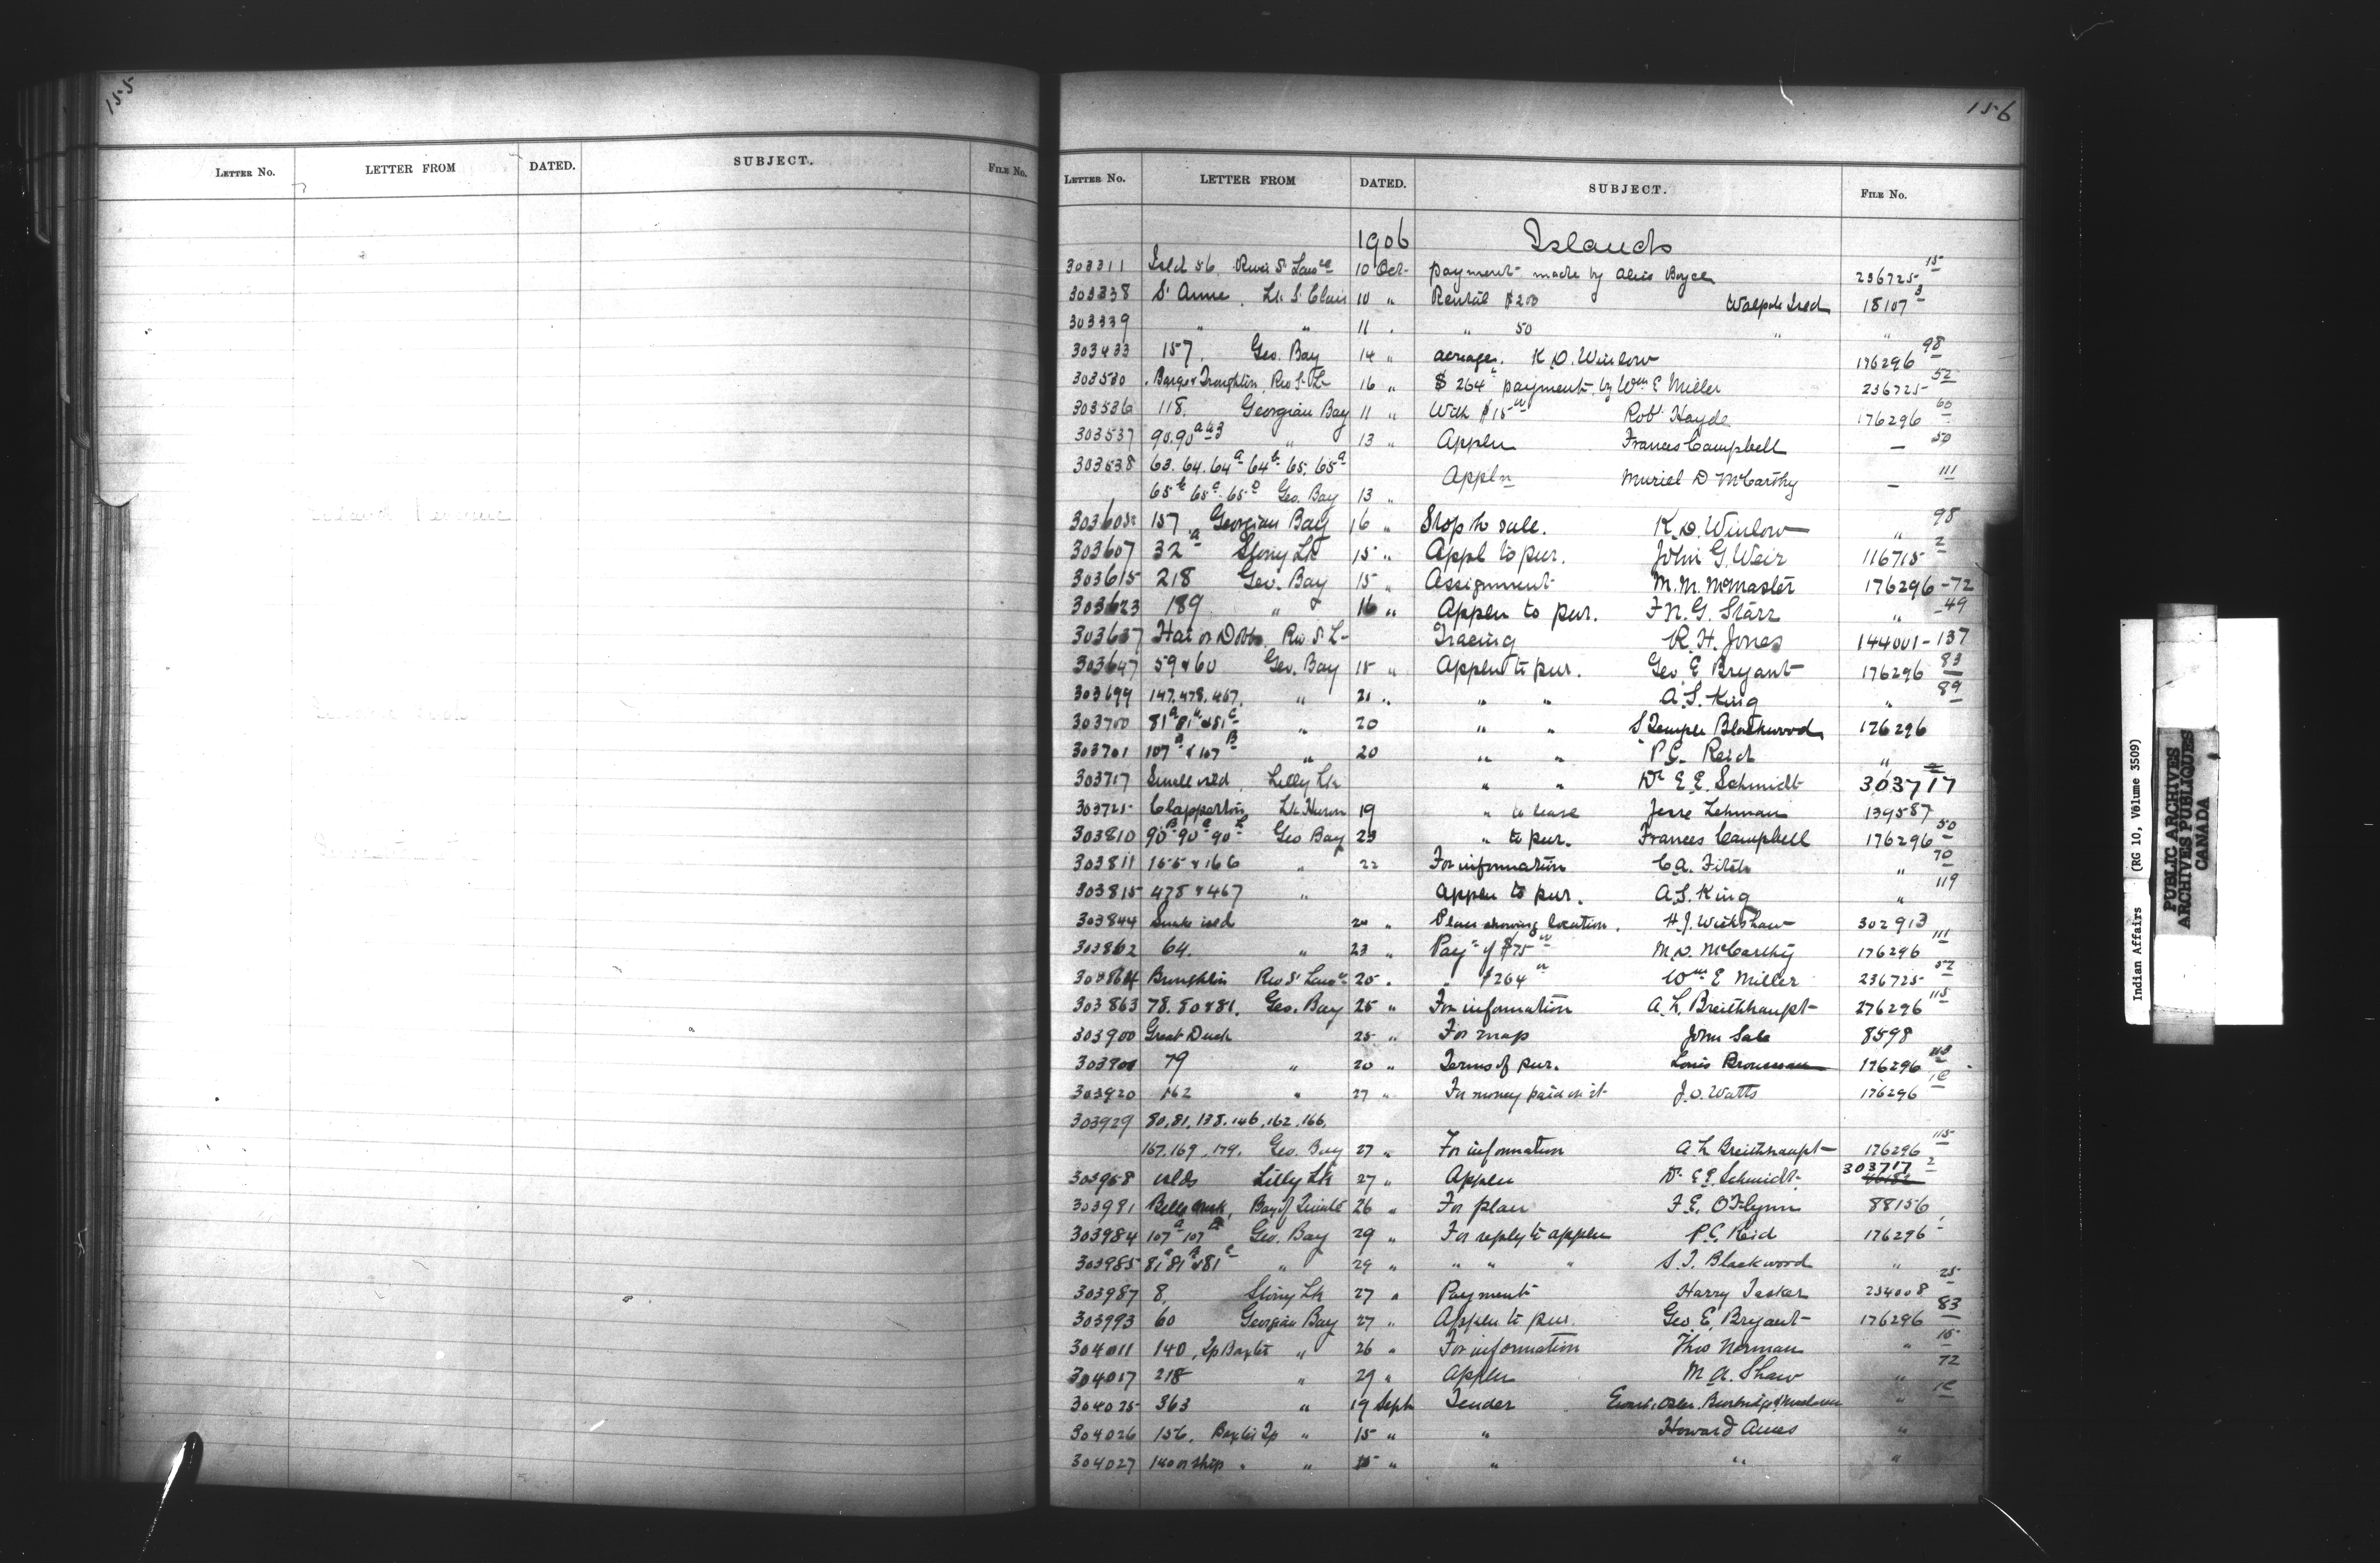 155
LETTER NO. LETTER FROM DATED. SUBJECT. FILE NO.
156
LETTER NO. LETTER FROM DATED. SUBJECT. FILE NO.
1906 Islands
303311 Isld 56, River St Lawce 10 Oct. payment made by Alice Boyce 236725 15
303338 St Anne, Lk St Clair 10 " Rental $200 Walpole Isld 18107 3
303339 " " 11 . " 50 " "
303433 157, Geo. Bay 14 " acreage. K.D. Winlow 176296 98
303530 Barge & Broughtin Riv St L. 16 " $264 payment by Wm E Miller 236725 52
303536 118. Georgian Bay 11 " With $15 00 Robt Hayde 176296 60
303537 90.90 a & 3 " 13 " Appln Frances Campbell — 50
303538 63. 64. 64a 64b 65. 65a
65b 65c 65D Geo. Bay 13 " Appln Muriel D McCarthy — 111
303605 157 Georgian Bay 16 " Stop to sale. K.D. Winlow " 98
303607 32a Stony Lk 15 " Appl to pur. John G Weir 116715 2
303615 218 Geo. Bay 15 " Assignment M.M. McMaster 176296-72
303623 189 " 16 " Appln to pur. F.N.G. Starr " -49
303637 Hai or Dobbs Riv St L- Tracing R.H. Jones 144001-137
303647 59 & 60 Geo. Bay 15 " Appln to pur. Geo E Bryant 176296 83
303699 147.478.467. " 21 " " " A.S. King " 89
303700 81a 81b & 81c " 20 " " S Temple Blackwood 176296
303701 107a & 107B " 20 " " P.C. Reid "
303717 Small isld, Lilly Lk " " Dr E E. Schmidt 303717
303725 Clapperton, Lk Huron 19 " to lease Jesse Lehman 139587
303810 90B 90C 90 Geo Bay 23 " to pur. Frances Campbell 176296 50
303811 165 & 166 " 22 For information C.A. Fitch " 70
303815 478 & 467 " Appln to pur. A.S. King " 119
303844 isld 20 " Plan showing location. H.J. Wickshaw 302913
303862 64. " 23 " Payt of $75 00 M.D. McCarthy 176296 111
303864 Broughtin Riv St Lawce 20 . " $264 00 Wm E Miller 236725 52
303863 78.80 & 81. Geo. Bay 25 " For information A.L. Breithhaupt 276296 115
303900 Great Duck 25 " For map John Sale 8598
303901 79 " 20 " Terms of pur. Louis Brousseau 176296 113
303920 162 " 27 " For money paid on it J.O. Watts 176296 1c
303929 80.81.138.146.162.166.
167.169.179. Geo. Bay 27 " For information A L Breithhaupt 176296 115
303958 islds Lilly Lk 27 " Appln Dr E E. Schmidt 303717 2
303981 Bay of Quinte 26 " For plan F.E. O'Flynn 88156
303984 107a 107B Geo. Bay 29 " For reply to appln P.C. Reid 176296
303985 81a 81B & 81c " 29 " " " " S.T. Blackwood "
303987 8, Stony Lk 27 " Payment Harry Tasker 254008 25
303993 60 Georgian Bay 27 " Appln to pur. Geo. E. Bryant 176296 83
304011 140, Tp Baxter " 26 " For information Theo Norman " 15
304017 218 " 29 " Appln M.A. Shaw " 72
304025 363 " 19 Sept Tender " 1c
304026 156, Baxter Tp " 15 " " Howard Ames "
304027 140 or ship . " 15 " " " "
Indian Affairs (RG 10, Volume 3509)
PUBLIC ARCHIVES
ARCHIVES PUBLIQUES
CANADA